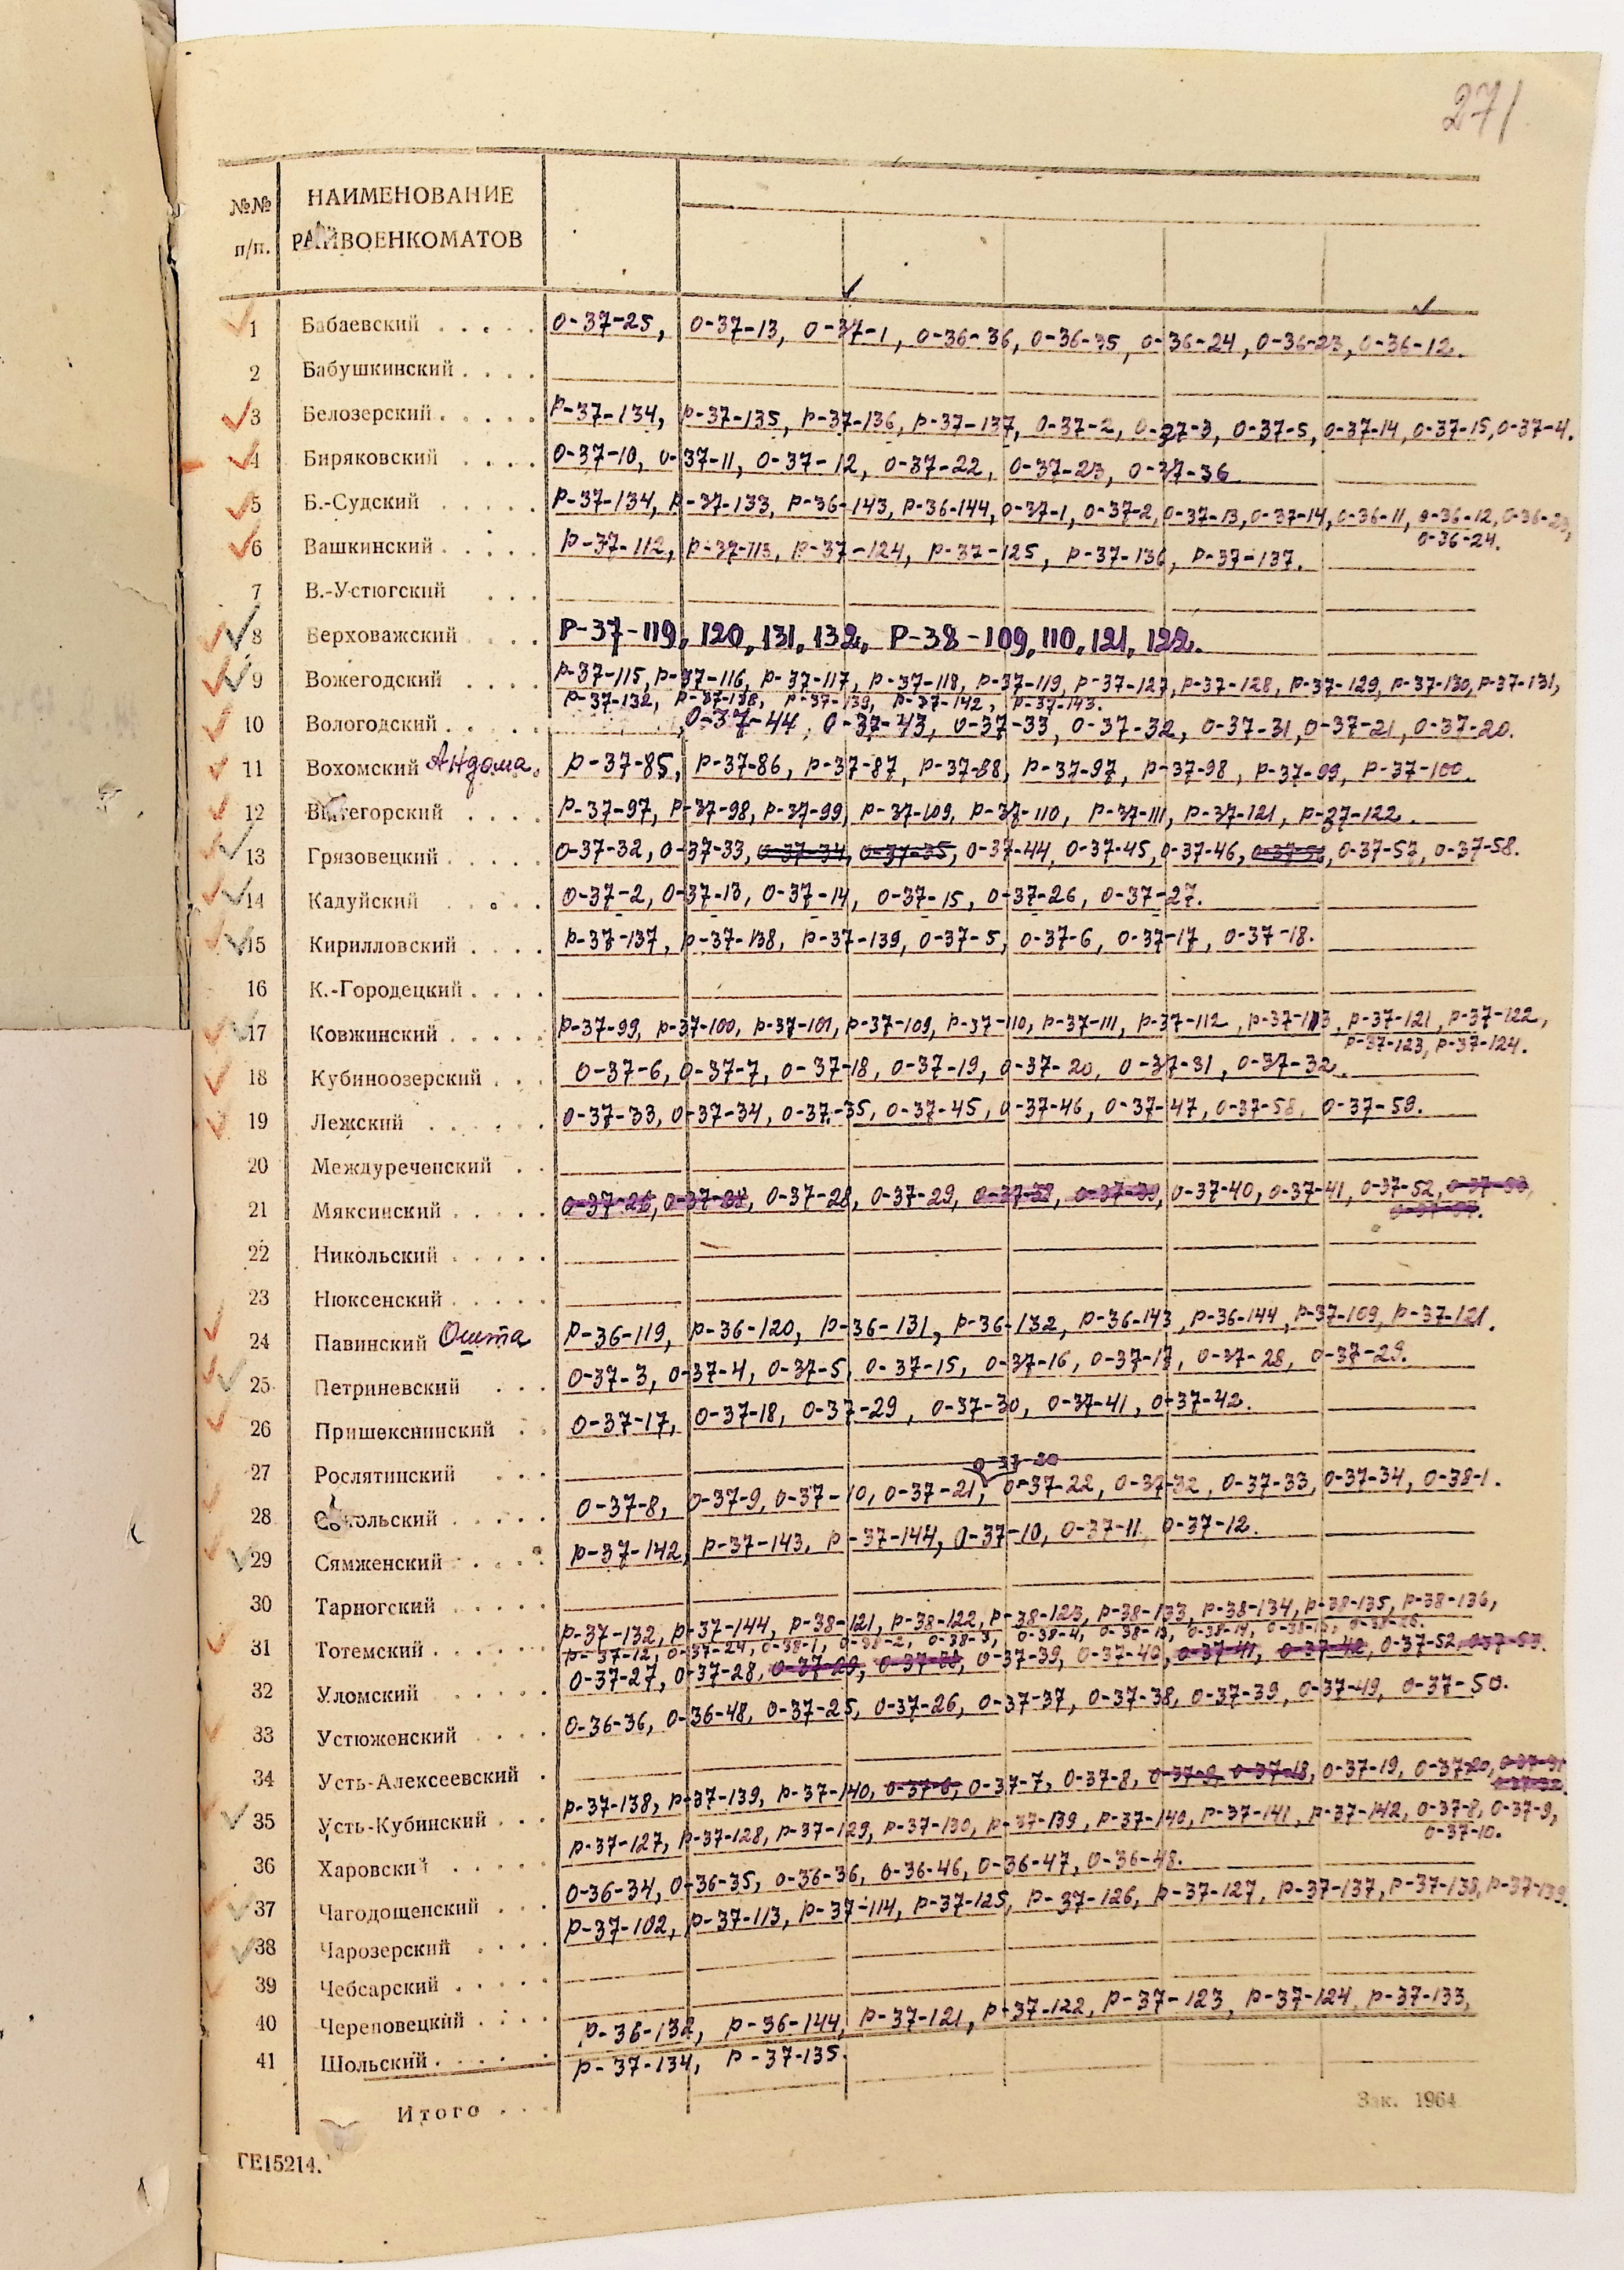 271
№№ п/п. НАИМЕНОВАНИЕ РАЙВОЕНКОМАТОВ
1 Бабаевский . . . . . 0-37-25, 0-37-13, 0-37-1, 0-36-36, 0-36-35, 0-36-24, 0-36-23, 0-36-12.
2 Бабушкинский . . . .
3 Белозерский . . . . . Р-37-134, Р-37-135, Р-37-136, Р-37-137, 0-37-2, 0-37-3, 0-37-5, 0-37-14, 0-37-15, 0-37-4.
4 Биряковский . . . . 0-37-10, 0-37-11, 0-37-12, 0-37-22, 0-37-23, 0-37-36
5 Б.-Судский . . . . . Р-37-134, Р-37-133, Р-36-143, Р-36-144, 0-37-1, 0-37-2, 0-37-13, 0-37-14, 0-36-11, 0-36-12, 0-36-23,
0-36-24.
6 Вашкинский . . . . . Р-37-112, Р-37-113, Р-37-124, Р-37-125, Р-37-136, Р-37-137.
7 В.-Устюгский . . .
8 Верховажский . . . Р-37-119, 120, 131, 132, Р-38-109, 110, 121, 122.
9 Вожегодский . . . . Р-37-115, Р-37-116, Р-37-117, Р-37-118, Р-37-119, Р-37-127, Р-37-128, Р-37-129, Р-37-130, Р-37-131,
Р-37-132, Р-37-138, Р-37-139, Р-37-142, Р-37-143.
10 Вологодский . . . . . 0-37-44, 0-37-43, 0-37-33, 0-37-32, 0-37-31, 0-37-21, 0-37-20.
11 Вохомский Андома. Р-37-85, Р-37-86, Р-37-87, Р-37-88, Р-37-97, Р-37-98, Р-37-99, Р-37-100.
12 Вытегорский . . . . Р-37-97, Р-37-98, Р-37-99, Р-37-109, Р-37-110, Р-37-111, Р-37-121, Р-37-122.
13 Грязовецкий . . . . . 0-37-32, 0-37-33, 0-37-34, 0-37-35, 0-37-44, 0-37-45, 0-37-46, 0-37-56, 0-37-57, 0-37-58.
14 Кадуйский . . . . 0-37-2, 0-37-13, 0-37-14, 0-37-15, 0-37-26, 0-37-27.
15 Кирилловский . . . . Р-37-137, Р-37-138, Р-37-139, 0-37-5, 0-37-6, 0-37-17, 0-37-18.
16 К.-Городецкий . . . .
17 Ковжинский . . . . . Р-37-99, Р-37-100, Р-37-101, Р-37-109, Р-37-110, Р-37-111, Р-37-112, Р-37-113, Р-37-121, Р-37-122,
Р-37-123, Р-37-124.
18 Кубиноозерский . . . 0-37-6, 0-37-7, 0-37-18, 0-37-19, 0-37-20, 0-37-31, 0-37-32.
19 Лежский . . . . . . 0-37-33, 0-37-34, 0-37-35, 0-37-45, 0-37-46, 0-37-47, 0-37-58, 0-37-59.
20 Междуреченский . .
21 Мяксинский . . . . . 0-37-28, 0-37-29, 0-37-40, 0-37-41, 0-37-52,
22 Никольский . . . . .
23 Нюксенский . . . . .
24 Павинский Ошта Р-36-119, Р-36-120, Р-36-131, Р-36-132, Р-36-143, Р-36-144, Р-37-109, Р-37-121.
25 Петриневский . . . 0-37-3, 0-37-4, 0-37-5, 0-37-15, 0-37-16, 0-37-17, 0-37-28, 0-37-29.
26 Пришекснинский . . 0-37-17, 0-37-18, 0-37-29, 0-37-30, 0-37-41, 0-37-42.
27 Рослятинский . . .
0-37-20
28 Сокольский . . . . . 0-37-8, 0-37-9, 0-37-10, 0-37-21, 0-37-22, 0-37-32, 0-37-33, 0-37-34, 0-38-1.
29 Сямженский . . . . Р-37-142, Р-37-143, Р-37-144, 0-37-10, 0-37-11, 0-37-12.
30 Тарногский . . . . .
31 Тотемский . . . . Р-37-132, Р-37-144, Р-38-121, Р-38-122, Р-38-123, Р-38-133, Р-38-134, Р-38-135, Р-38-136,
Р-37-12, 0-37-24, 0-38-1, 0-38-2, 0-38-3, 0-38-4, 0-38-13, 0-38-14,
32 Уломский . . . . . 0-37-27, 0-37-28, 0-37-29, 0-37-39, 0-37-40, 0-37-41, 0-37-42, 0-37-52, 0-37-53.
33 Устюженский . . . . 0-36-36, 0-36-48, 0-37-25, 0-37-26, 0-37-37, 0-37-38, 0-37-39, 0-37-49, 0-37-50.
34 Усть-Алексеевский .
35 Усть-Кубинский . . . Р-37-138, Р-37-139, Р-37-140, 0-37-6, 0-37-7, 0-37-8, 0-37-9, 0-37-18, 0-37-19, 0-37-20, 0-37-31
0-37-32.
36 Харовский . . . . . Р-37-127, Р-37-128, Р-37-129, Р-37-130, Р-37-139, Р-37-140, Р-37-141, Р-37-142, 0-37-8, 0-37-9,
0-37-10.
37 Чагодощенский . . . 0-36-34, 0-36-35, 0-36-36, 0-36-46, 0-36-47, 0-36-48.
38 Чарозерский . . . . Р-37-102, Р-37-113, Р-37-114, Р-37-125, Р-37-126, Р-37-127, Р-37-137, Р-37-138, Р-37-139.
39 Чебсарский . . . . .
40 Череповецкий . . . .
41 Шольский . . . . . Р-36-132, Р-36-144, Р-37-121, Р-37-122, Р-37-123, Р-37-124, Р-37-133,
Р-37-134, Р-37-135.
Итого . . .
Зак. 1964
ГЕ15214.